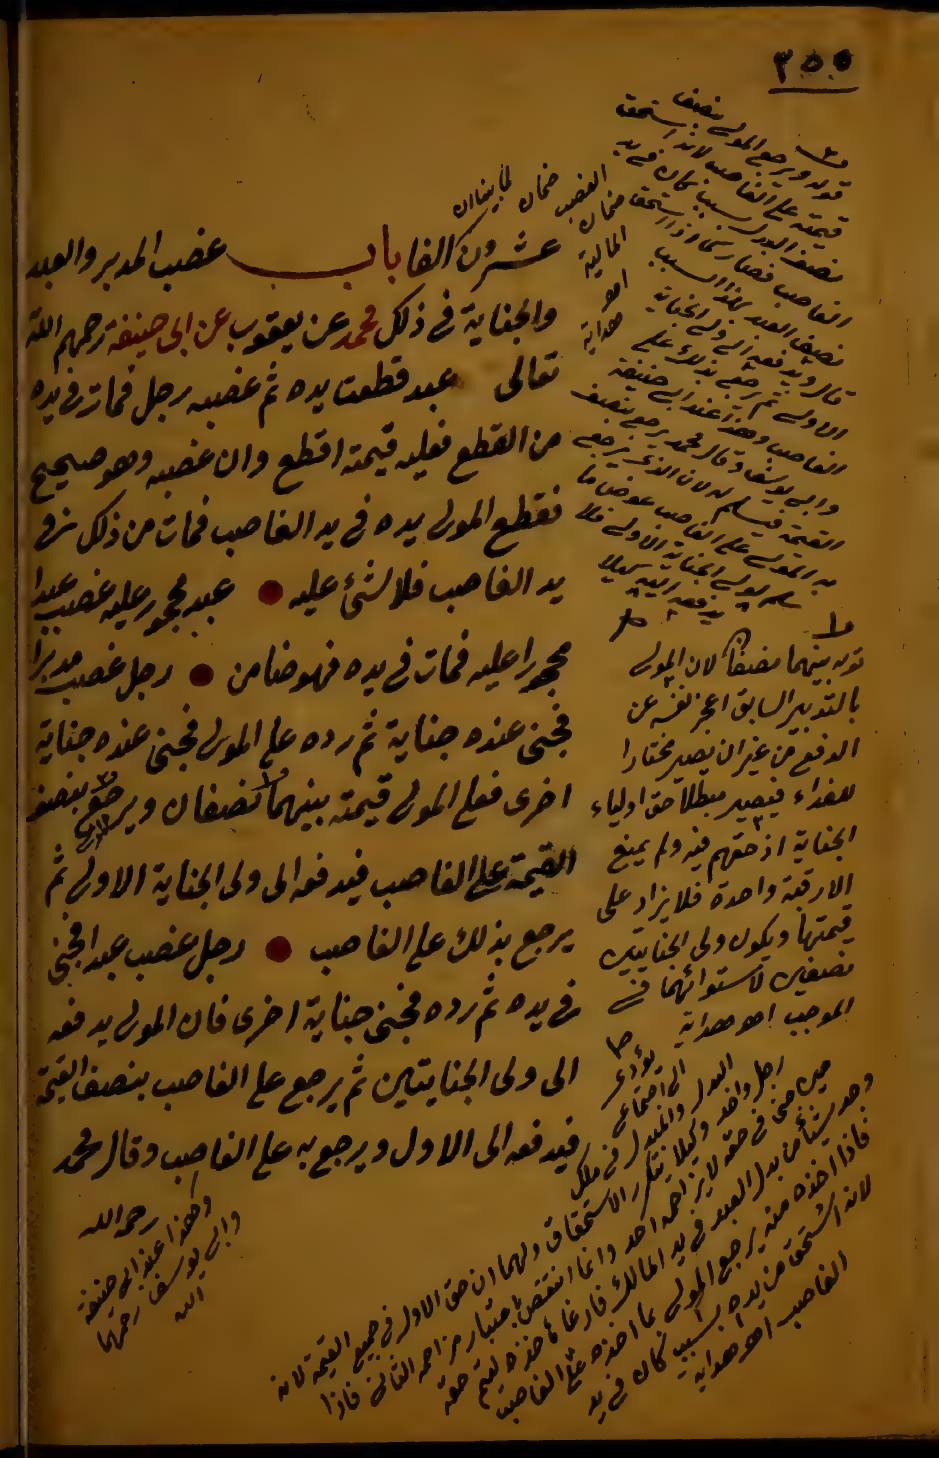 ٣٥٥
باب غصب المدبر والعبد
والجناية في ذلك محمد عن يعقوب عن ابى حنيفة رحمهم الله
تعالى عبد قطعت يده ثم غصبه رجل فمات في يده
من القطع فعليه قيمته اقطع وان غصبه وهو صحيح
فقطع المولى يده في يد الغاصب فمات من ذلك في
يد الغاصب فلا شئ عليه عبد محجور عليه غصب عبدا
محجورا عليه فمات في يده فهو ضامن رجل غصب مدبرا
فجنى عنده جناية ثم رده على المولى فجنى عنده جناية
اخرى فعلى المولى قيمته بينهما نصفان ويرجع بنصف
القيمة على الغاصب فيدفعه الى ولى الجناية الاولى ثم
يرجع بذلك على الغاصب رجل غصب عبدا فجنى
في يده ثم رده فجنى جناية اخرى فان المولى يدفعه
الى ولى الجنايتين ثم يرجع على الغاصب بنصف القيمة
فيدفعه الى الاول ويرجع به على الغاصب وقال محمد
رحمه الله
وهذا عند ابى حنيفة
وابى يوسف رحمهما
الله
قوله ويرجع المولى بنصف
قيمته على الغاصب لانه استحق
نصف البدل بسبب كان في يد
الغاصب فصار كما اذا استحق
نصف العبد بهذا السبب
قال ويدفعه الى ولى الجناية
الاولى ثم يرجع بذلك على
الغاصب وهذا عند ابى حنيفة
وابى يوسف وقال محمد يرجع بنصف
القيمة فيسلم له لان الذى يرجع
به المولى على الغاصب عوض ما
سلم لولى الجناية الاولى فلا
يدفعه اليه كيلا
قوله بينهما نصفان لان المولى
بالتدبير السابق اعجز نفسه عن
الدفع من غير ان يصير مختارا
للفداء فيصير مبطلا حق اولياء
الجناية اذ حقهم فيه ولم يمنع
الا رقبة واحدة فلا يزاد على
قيمتها ويكون ولى الجنايتين
نصفين لاستوائهما في
الموجب اهـ هداية
يؤدى
الى اجتماع
البدل والمبدل في ملك
رجل واحد وكيلا يتكرر الاستحقاق ولهما ان حق الاول في جميع القيمة لانه
حين جنى في حقه لا يزاحمه احد وانما انتقص باعتبار مزاحمة الثانى فاذا
وجد شيئا من بدل العبد في يد المالك فارغا ياخذه ليتم حقه
فاذا اخذه منه يرجع المولى بما اخذه على الغاصب
لانه استحق من يده بسبب كان في يد
الغاصب اهـ هداية